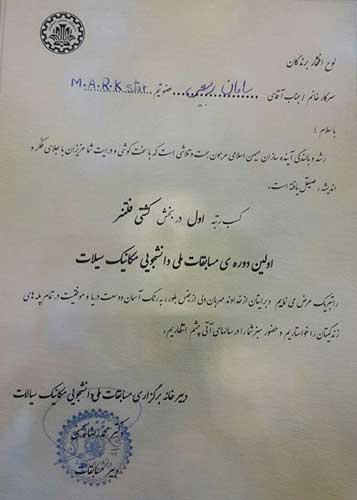 لوح افتخار برندگان
سرکار خانم / جناب آقای ..... عضو تیم M.A.R.K star
با سلام ؛
رشد و بالندگی آینده سازان میهن اسلامی مرهون همت و تلاشی است که با سخت کوشی و درایت شما عزیزان با جلای تفکر و
اندیشه، صیقل یافته است.
کسب رتبه اول در بخش کشتی فلتنر
اولین دوره ی مسابقات ملی دانشجویی مکانیک سیالات
را تبریک عرض می نماییم. برایتان از خداوند مهربان دلی از جنس بلور، به رنگ آسمان و وسعت دریا و موفقیت در تمام پله های
زندگیتان را خواستاریم و حضور سبز شما را در سالهای آتی چشم انتظاریم.
دبیرخانه برگزاری مسابقات ملی دانشجویی مکانیک سیالات
دکتر محمدرضا
دبیر مسابقات